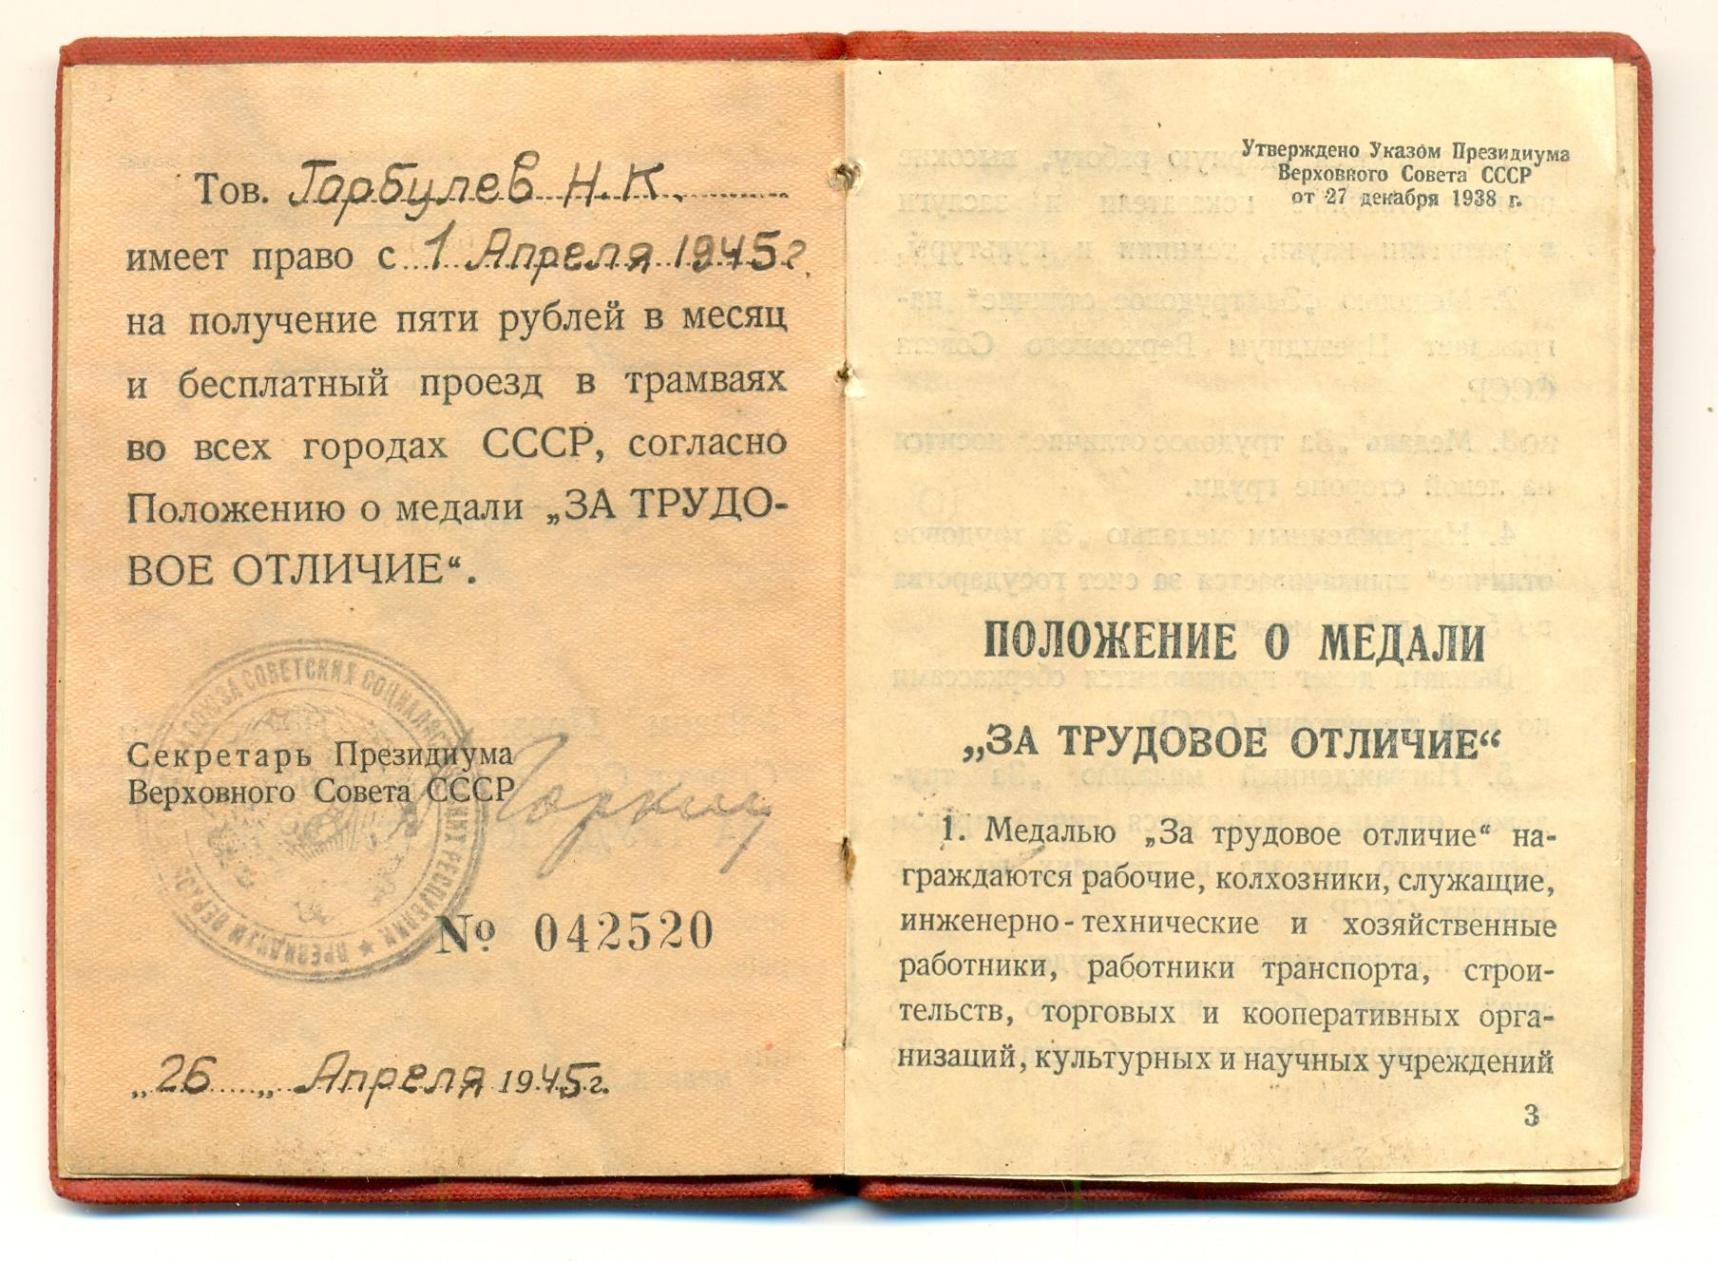 Тов. Гарбулев Н.К.
имеет право с 1 Апреля 1945 г.
на получение пяти рублей в месяц
и бесплатный проезд в трамваях
во всех городах СССР, согласно
Положению о медали „ЗА ТРУДО-
ВОЕ ОТЛИЧИЕ“.
СОЮЗА СОВЕТСКИХ
Секретарь Президиума
Верховного Совета СССР
Горкин
№ 042520
„26„ Апреля 1945г.
Утверждено Указом Президиума
Верховного Совета СССР
от 27 декабря 1938 г.
ПОЛОЖЕНИЕ О МЕДАЛИ
„ЗА ТРУДОВОЕ ОТЛИЧИЕ“
1. Медалью „За трудовое отличие“ на-
граждаются рабочие, колхозники, служащие,
инженерно-технические и хозяйственные
работники, работники транспорта, строи-
тельств, торговых и кооперативных орга-
низаций, культурных и научных учреждений
3